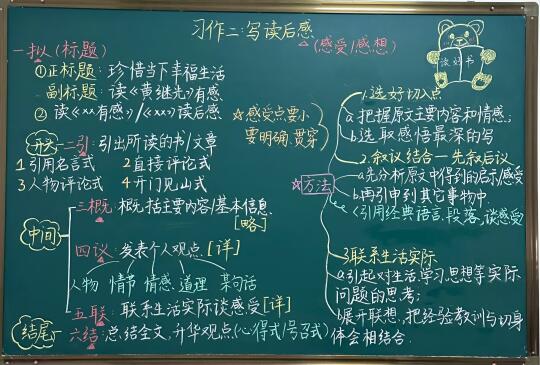 习作二:写读后感
(感受/感想)
一拟(标题)
①正标题:珍惜当下幸福生活
副标题:读《黄继光》有感
②读《××有感》/《×××》读后感
☆感受点要小
要明确、贯穿
开头-二引:引出所读的书/文章
1引用名言式 2直接评论式
3人物评论式 4开门见山式
中间
三概:概括主要内容/基本信息
[略]
四议:发表个人观点[详]
人物 情节 情感 道理 某句话
五联:联系生活实际谈感受[详]
结尾-六结:总结全文,升华观点(心得式/号召式)
读好书
☆方法
1.选好切入点
a.把握原文主要内容和情感;
b.选取感悟最深的写
2.叙议结合-先叙后议
a.先分析原文中得到的启示/感受
b.再引申到其它事物中
(引用经典语言,段落,谈感受)
3联系生活实际
a.引起对生活学习思想等实际
问题的思考;
b展开联想,把经验教训与切身
体会相结合.